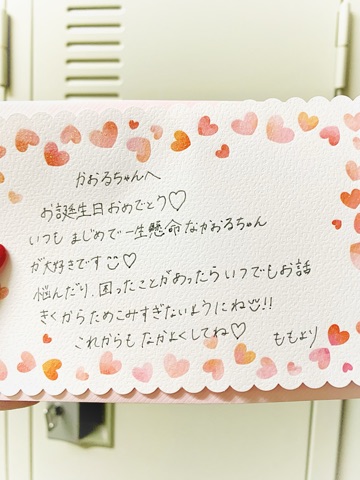 かおるちゃんへ
お誕生日おめでとう♡
いつもまじめで一生懸命なかおるちゃん
が大好きです☺♡
悩んだり、困ったことがあったらいつでもお話
きくからためこみすぎないようにね☺!!
これからもなかよくしてね♡
ももより